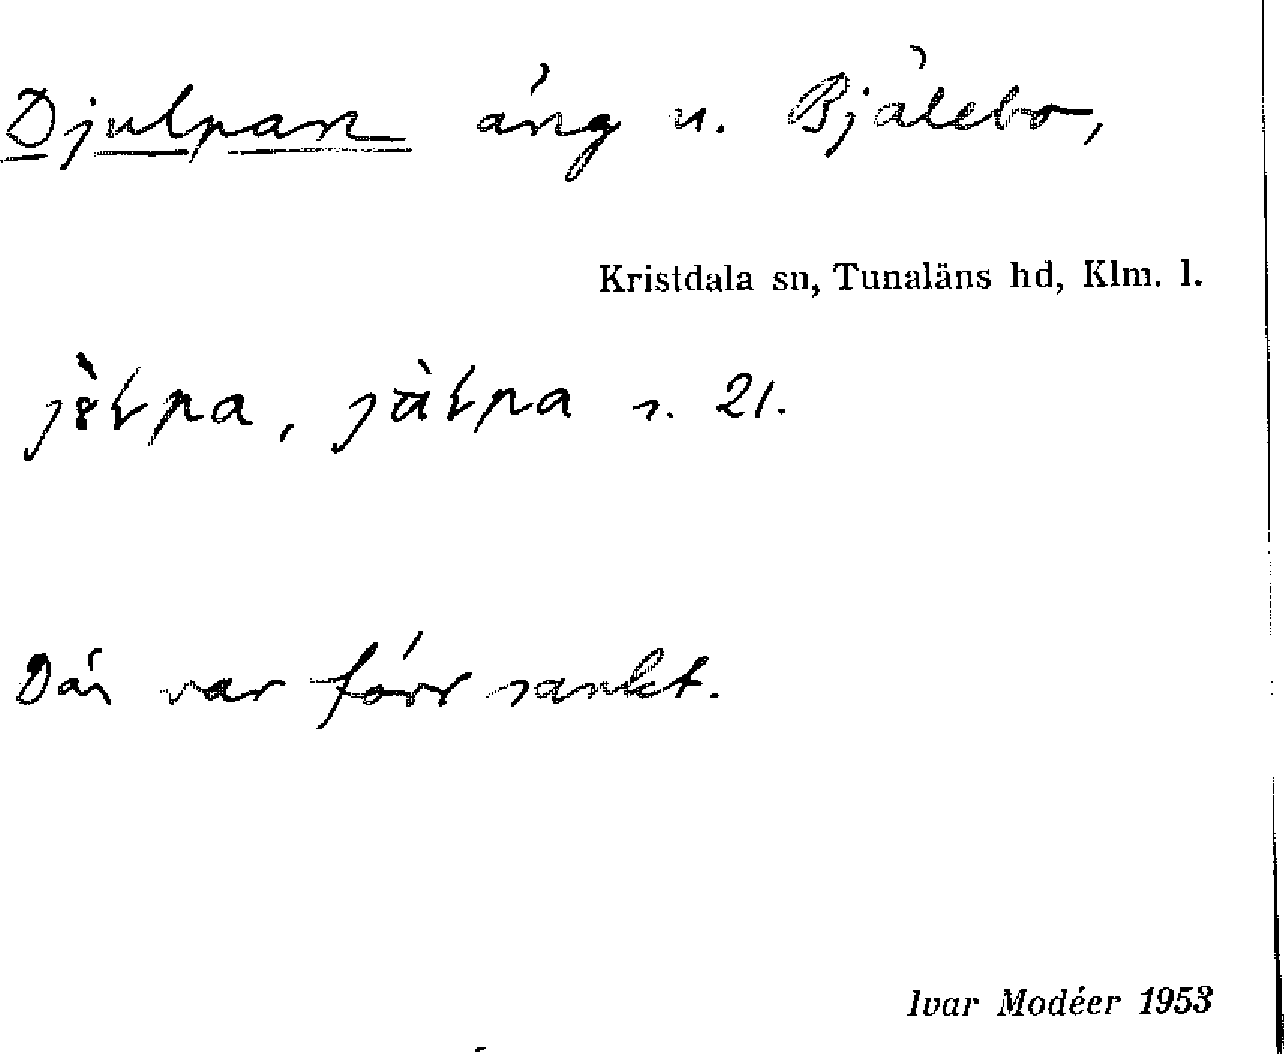 Djulpan äng u. Bjälebo,
Kristdala sn, Tunaläns hd, Klm. l.
s. 21.
Där var förr sankt.
Ivar Modéer 1953